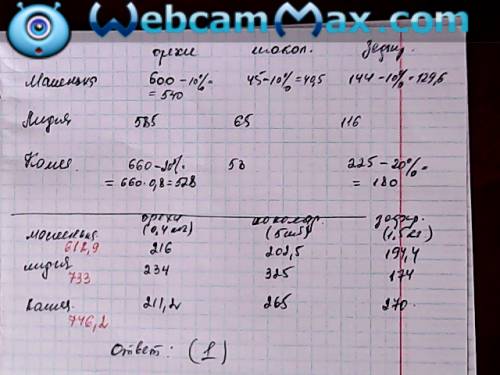 WebcamMax.com
орехи шокол. зефир.
Машенька 600-10%= 45-10%=40,5 144-10%=129,6
= 540
Лидия 585 65 116
660-20% 53 225-20%=
= 660·0,8=528 = 180
орехи шоколад. зефир.
(0,4 кг) (5 шт) (1,5 кг)
Машенька 216 202,5 194,4
612,9
Лидия 234 325 174
733
211,2 265 270
746,2
Ответ: (1)